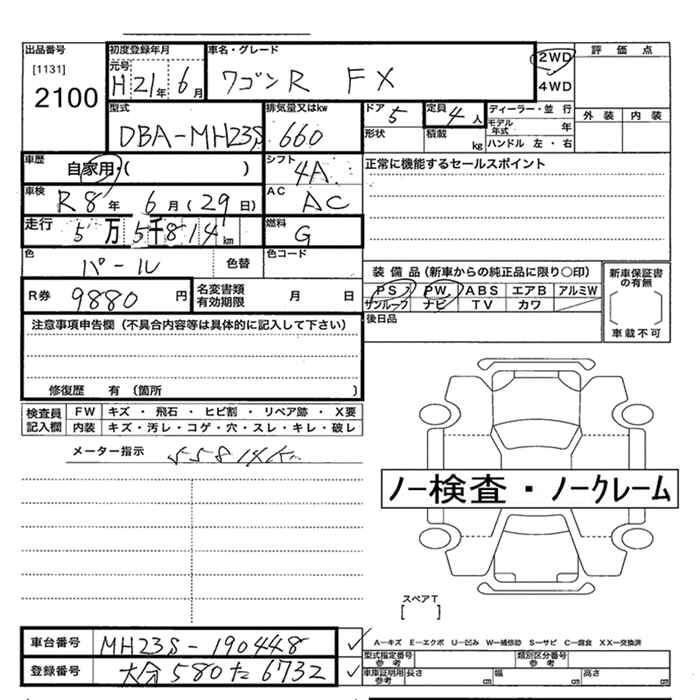 出品番号
[1131]
2100
初度登録年月
元号
H21年 6月
車名・グレード
ワゴンR FX
2WD
4WD
評価点
外装 内装
型式
DBA-MH23S
排気量又はkw
660
ドア 5
形状
定員 4人
積載 kg
ディーラー・並行
モデル年式 年
ハンドル 左・右
車歴
自家用・( )
シフト
4A
正常に機能するセールスポイント
車検
R8年 6月(29日)
AC
AC
走行
5万5千814km
燃料
G
色
パール
色替
色コード
R券 9880円
名変書類有効期限 月 日
装備品(新車からの純正品に限り○印)
PS PW ABS エアB アルミW
サンルーフ ナビ TV カワ
新車保証書の有無
[ ]
車載不可
後日品
注意事項申告欄(不具合内容等は具体的に記入して下さい)
修復歴 有(箇所 )
検査員記入欄
FW キズ・飛石・ヒビ割・リペア跡・X要
内装 キズ・汚レ・コゲ・穴・スレ・キレ・破レ
メーター指示 55814Km
ノー検査・ノークレーム
スペアT
[ ]
車台番号 MH23S-190448
登録番号 大分580た6732
A―キズ E―エクボ U―凹み W―補修跡 S―サビ C―腐食 XX―交換済
型式指定番号 参考
類別区分番号 参考
車庫証明用 参考
長さ cm 幅 cm 高さ cm